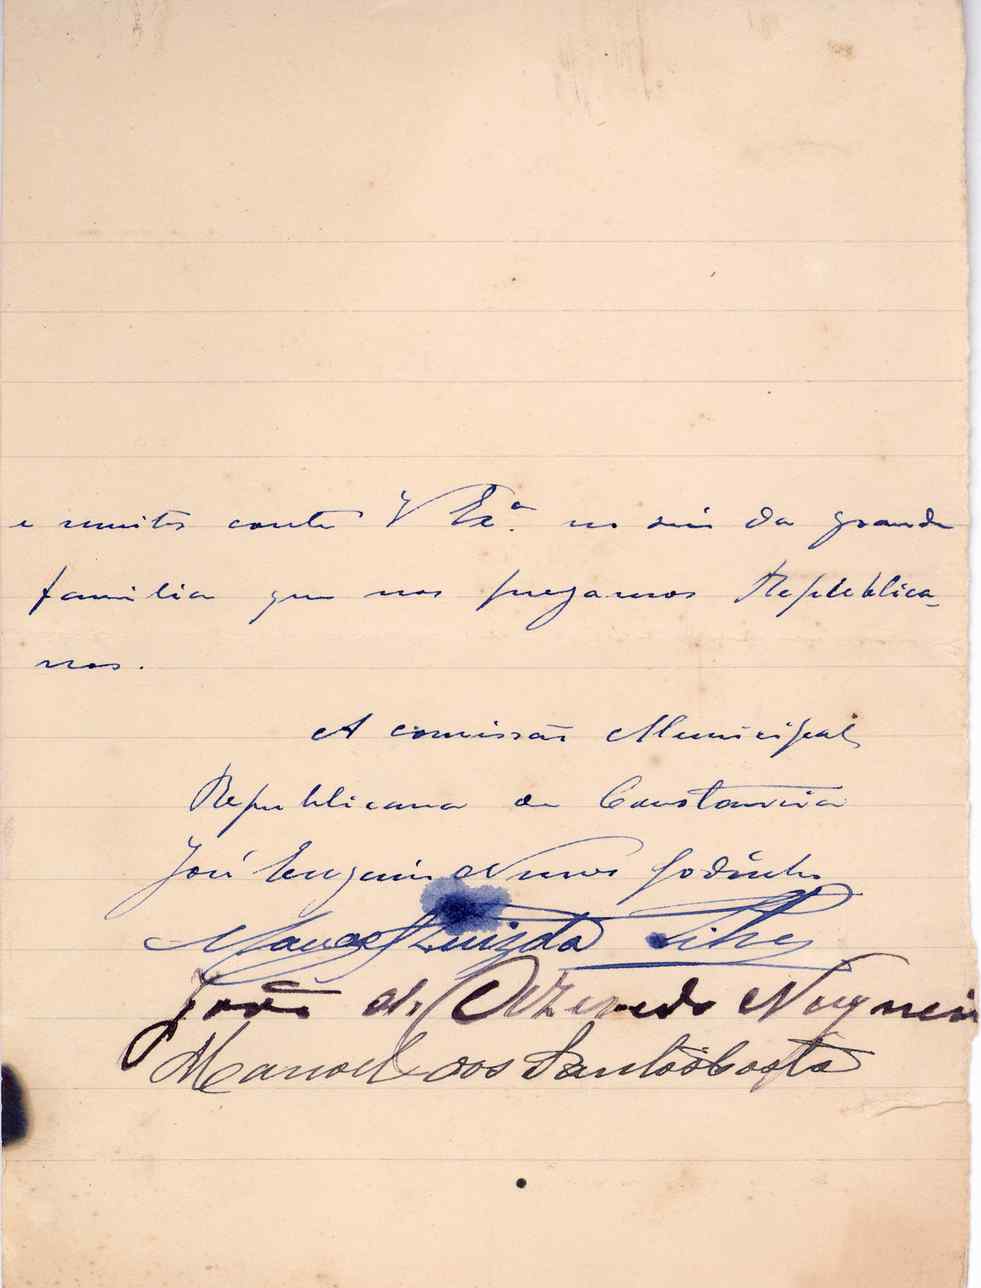 e muitos conte V Exª. no seio da grande
familia que nos prezamos Republica_
nos.
A comissão Municipal
Republicana de Constancia
José Eugenio Nunes Godinho
Manoel Luiz da Silva
João d'Azevedo Nogueira
Manoel dos Santos Costa